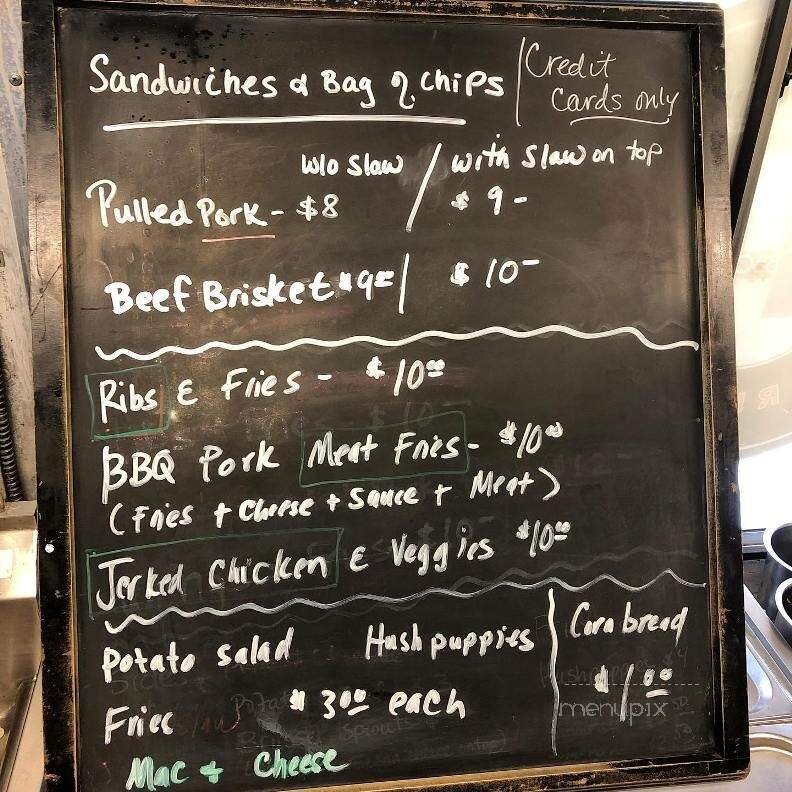 Sandwiches & Bag of Chips
Credit
Cards only
w/o Slaw / with Slaw on top
Pulled Pork - $8 / $9 -
Beef Brisket $9 = | $10 -
Ribs & Fries - $10 00
BBQ Pork Meat Fries - $10 00
(Fries + Cheese + Sauce + Meat)
Jerked Chicken & Veggies $10 00
Potato Salad Hushpuppies
Fries $3 00 each
Mac + Cheese
Corn bread
$1 00
menupix